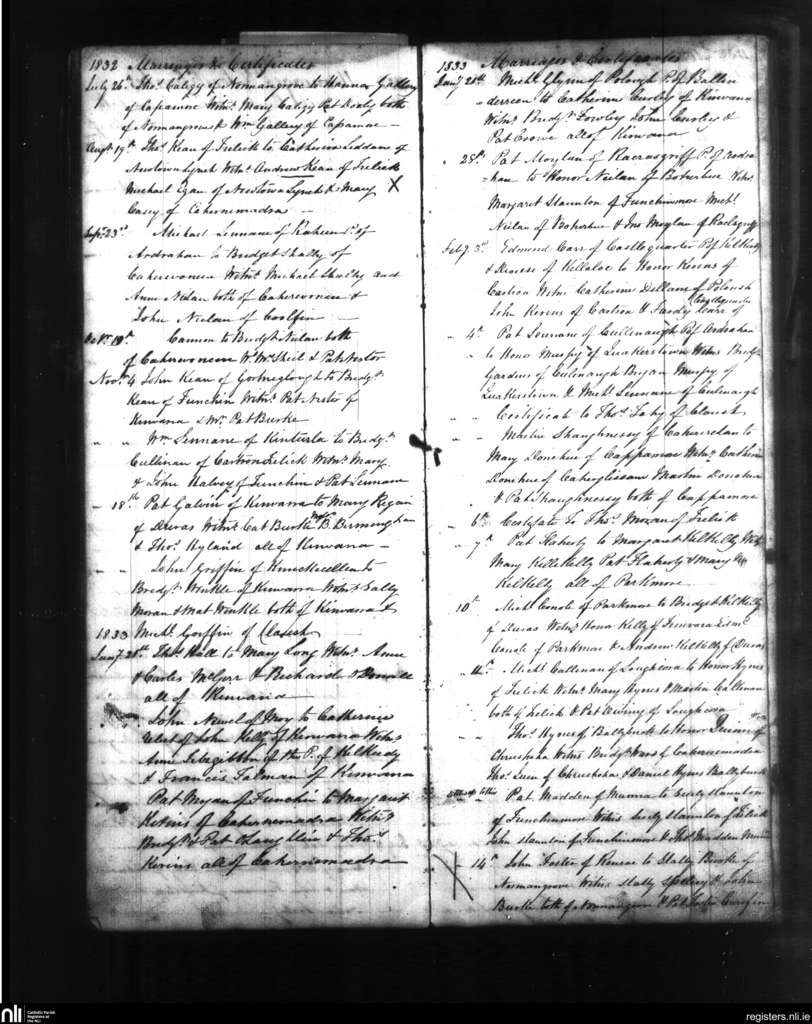 1832 Marriages & Certificates
July 26th Thos. Caligy of Normangrove to Hannor Gallery
of Capamore Witns. Mary Caligy Pat Dooly both
of Normangrove & Wm Gallery of Capamore
Augt 19th Thos. Kean of Trelick to Catherine Liddane of
Newtown Lynch Witns. Andrew Kean of Trelick
Michael Egan of Newtown Lynch & Mary X
Casey of Cahernemadra
Sepr. 23d Michael Linnane of Raheen P. of
Ardrahan to Bridget Shally of
Caherwoneen Witns. Michael Shally and
Ann Nilan both of Caherwoneen &
John Nilan of Coolfin
Octr. Cannon to Bridgt. Nilan both
of Caherwoneen W. Wm. Skeil & Pat Nestor
Novr. 4 John Kean of to Bridgt.
Kean of Funchin Witns. Pat Nestor of
Kinvara & Wm. Pat Burke
" " Wm. Linnane of Kinturla to Bridgt.
Cullinan of Cartron Trelick Witns. Mary
& John Halvey of Funchin & Pat Linnane
18th Pat Galvin of Kinvarra to Mary Regan
of Duras Witns. Cat Burke B. Birmingham
& Thos. Hyland all of Kinvara
John Griffin of Knockcullen to
Bridgt. Winkle of Kinvarra Witns. Sally
Moran & Mat Winkle both of Kinvara &
1833 Michl. Griffin of Claush
Jany. 28th Thos. Hall to Mary Long Witns. Anne
& Carles McGerr & Richard all
of Kinvara
John Newel of Moy to Catherine
Relict of John Kelly of Kinvara Witns.
Ann Fitzgibbon of the P. of Kilkeedy
& Francis Tatman of Kinvara
Pat Mryan of Funchin to Margaret
Kivins of Cahernemadra Witns.
Bridgt. & Pat Laughlin & Thos.
Kivins all of Cahernemadra
1833 Marriages & Certificates
Jany 28th Michl. Glynn of Polough P. of Ballin
-dereen to Catherine Curley of Kinvara
Witns. Bridgt. Fowley John Curley &
Pat Crowe all of Kinvara
" 28th Pat Moylan of P. of Ardra
-han to Honor Neilan of Boherbue Witns.
Margaret Staunton of Funchinmore Michl.
Neilan of Boherbue & Jno Moylan of
Feby. 3d Edmund Carr of Castlequarter P. of Kilkeedy
& Diocese of Killaloe to Honor Kerins of
Cartron Witns Catherine Dillane of Polough
John Kerins of Cartron & Fardy Carr of Castlequarter
" 4th Pat Linnane of Cullenaugh P. of Ardrahan
to Honor Murpy of Quakerstown Witns Bridgt.
Gardens of Culinaugh Bryan Murpy of
Quakerstown & Michl. Linnane of Culinaugh
" " Certificate to Thos. Fahy of Claush
" " Martin Shaughnessy of Caherer to
Mary Donohue of Cappamore Witns. Catherine
Donohue of Caherglissane Martin Donohue
& Pat Shaughnessy both of Cappamore
" 6th Certificate to Thos. Moran of Trelick
" 7th Pat Flaherty to Margaret Kilkelly Witns.
Mary Killkelly Pat Flaherty & Mary
Kilkelly all of Parkmore
10th Michl. Conole of Parkmore to Bridget Kilkelly
of Duras Witns. Honor Kelly of Kinvara Edmd.
Conole of Parkmore & Andrew Kilkelly of Duras
" 11th Michl. Callinan of Loughcora to Honor Hynes
of Trelick Witns. Mary Hynes & Martin Callinan
both of Trelick & Pat of Loughcora
" " Thos. Hynes of Ballybuck to Honor Quinn of
Witns. Bridgt. of Cahernemadra
Thos. Quin of & Daniel Hynes Ballybuck
Pat Madden of Munna to Staunton
of Funchinmore Witns Staunton of Trelick
John Staunton of Funchinmore & Thos. Madden
14th John Foster of Kinvar to Statty Burke of
Normangrove Witns. Statty & John
Burke both of Normangrove & Pat
nli Catholic Parish
Registers at
the NLI
registers.nli.ie